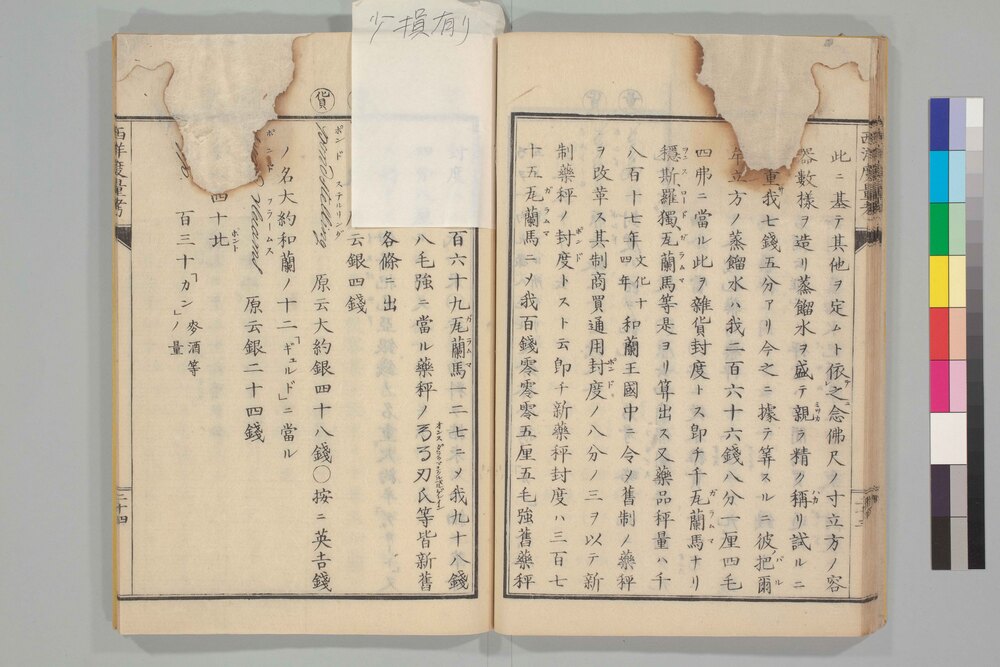 少損有り
此ニ基テ其他ヲ定ムト依之念佛尺ノ寸立方ノ容
器數様ヲ造リ蒸餾水ヲ盛テ親ラ精ク稱リ試ルニ
重我七錢五分アリ今之ニ據テ筭スルニ彼把爾
立方ノ蒸餾水ハ我二百六十六錢八分七厘四毛
四弗ニ當ル此ヲ雜貨封度トス即チ千瓦蘭馬ナリ
穩斯羅獨瓦蘭馬等是ヨリ算出ス又藥品秤量ハ千
八百十七年文化十四年和蘭王國中ニ令メ舊制ノ藥秤
ヲ改革ス其制商買通用封度ノ八分ノ三ヲ以テ新
制藥秤ノ封度トスト云即チ新藥秤封度ハ三百七
十五瓦蘭馬ニメ我百錢零零零五厘五毛強舊藥秤
百六十九瓦蘭馬二二七ニメ我九十八錢
八毛強ニ當ル藥秤ノ
等皆新舊
各條ニ出
云銀四錢
貨
ポンド ステルリング
原云大約銀四十八錢○按ニ英吉錢
ノ名大約和蘭ノ十二「ギュルド」ニ當ル
ポンド フラームス
原云銀二十四錢
四十
ポント
百三十「カン」ノ量
麥酒等
西洋度量考
二十四